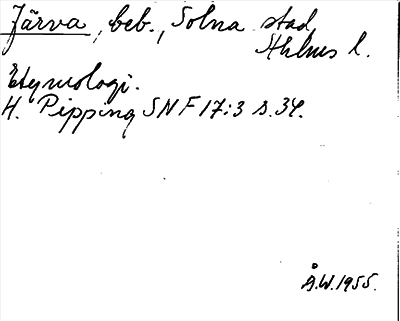 Järva, beb., Solna stad
Sthlms l.
Etymologi.
H. Pipping SNF 17:3 s. 34.
Å.W. 1955.